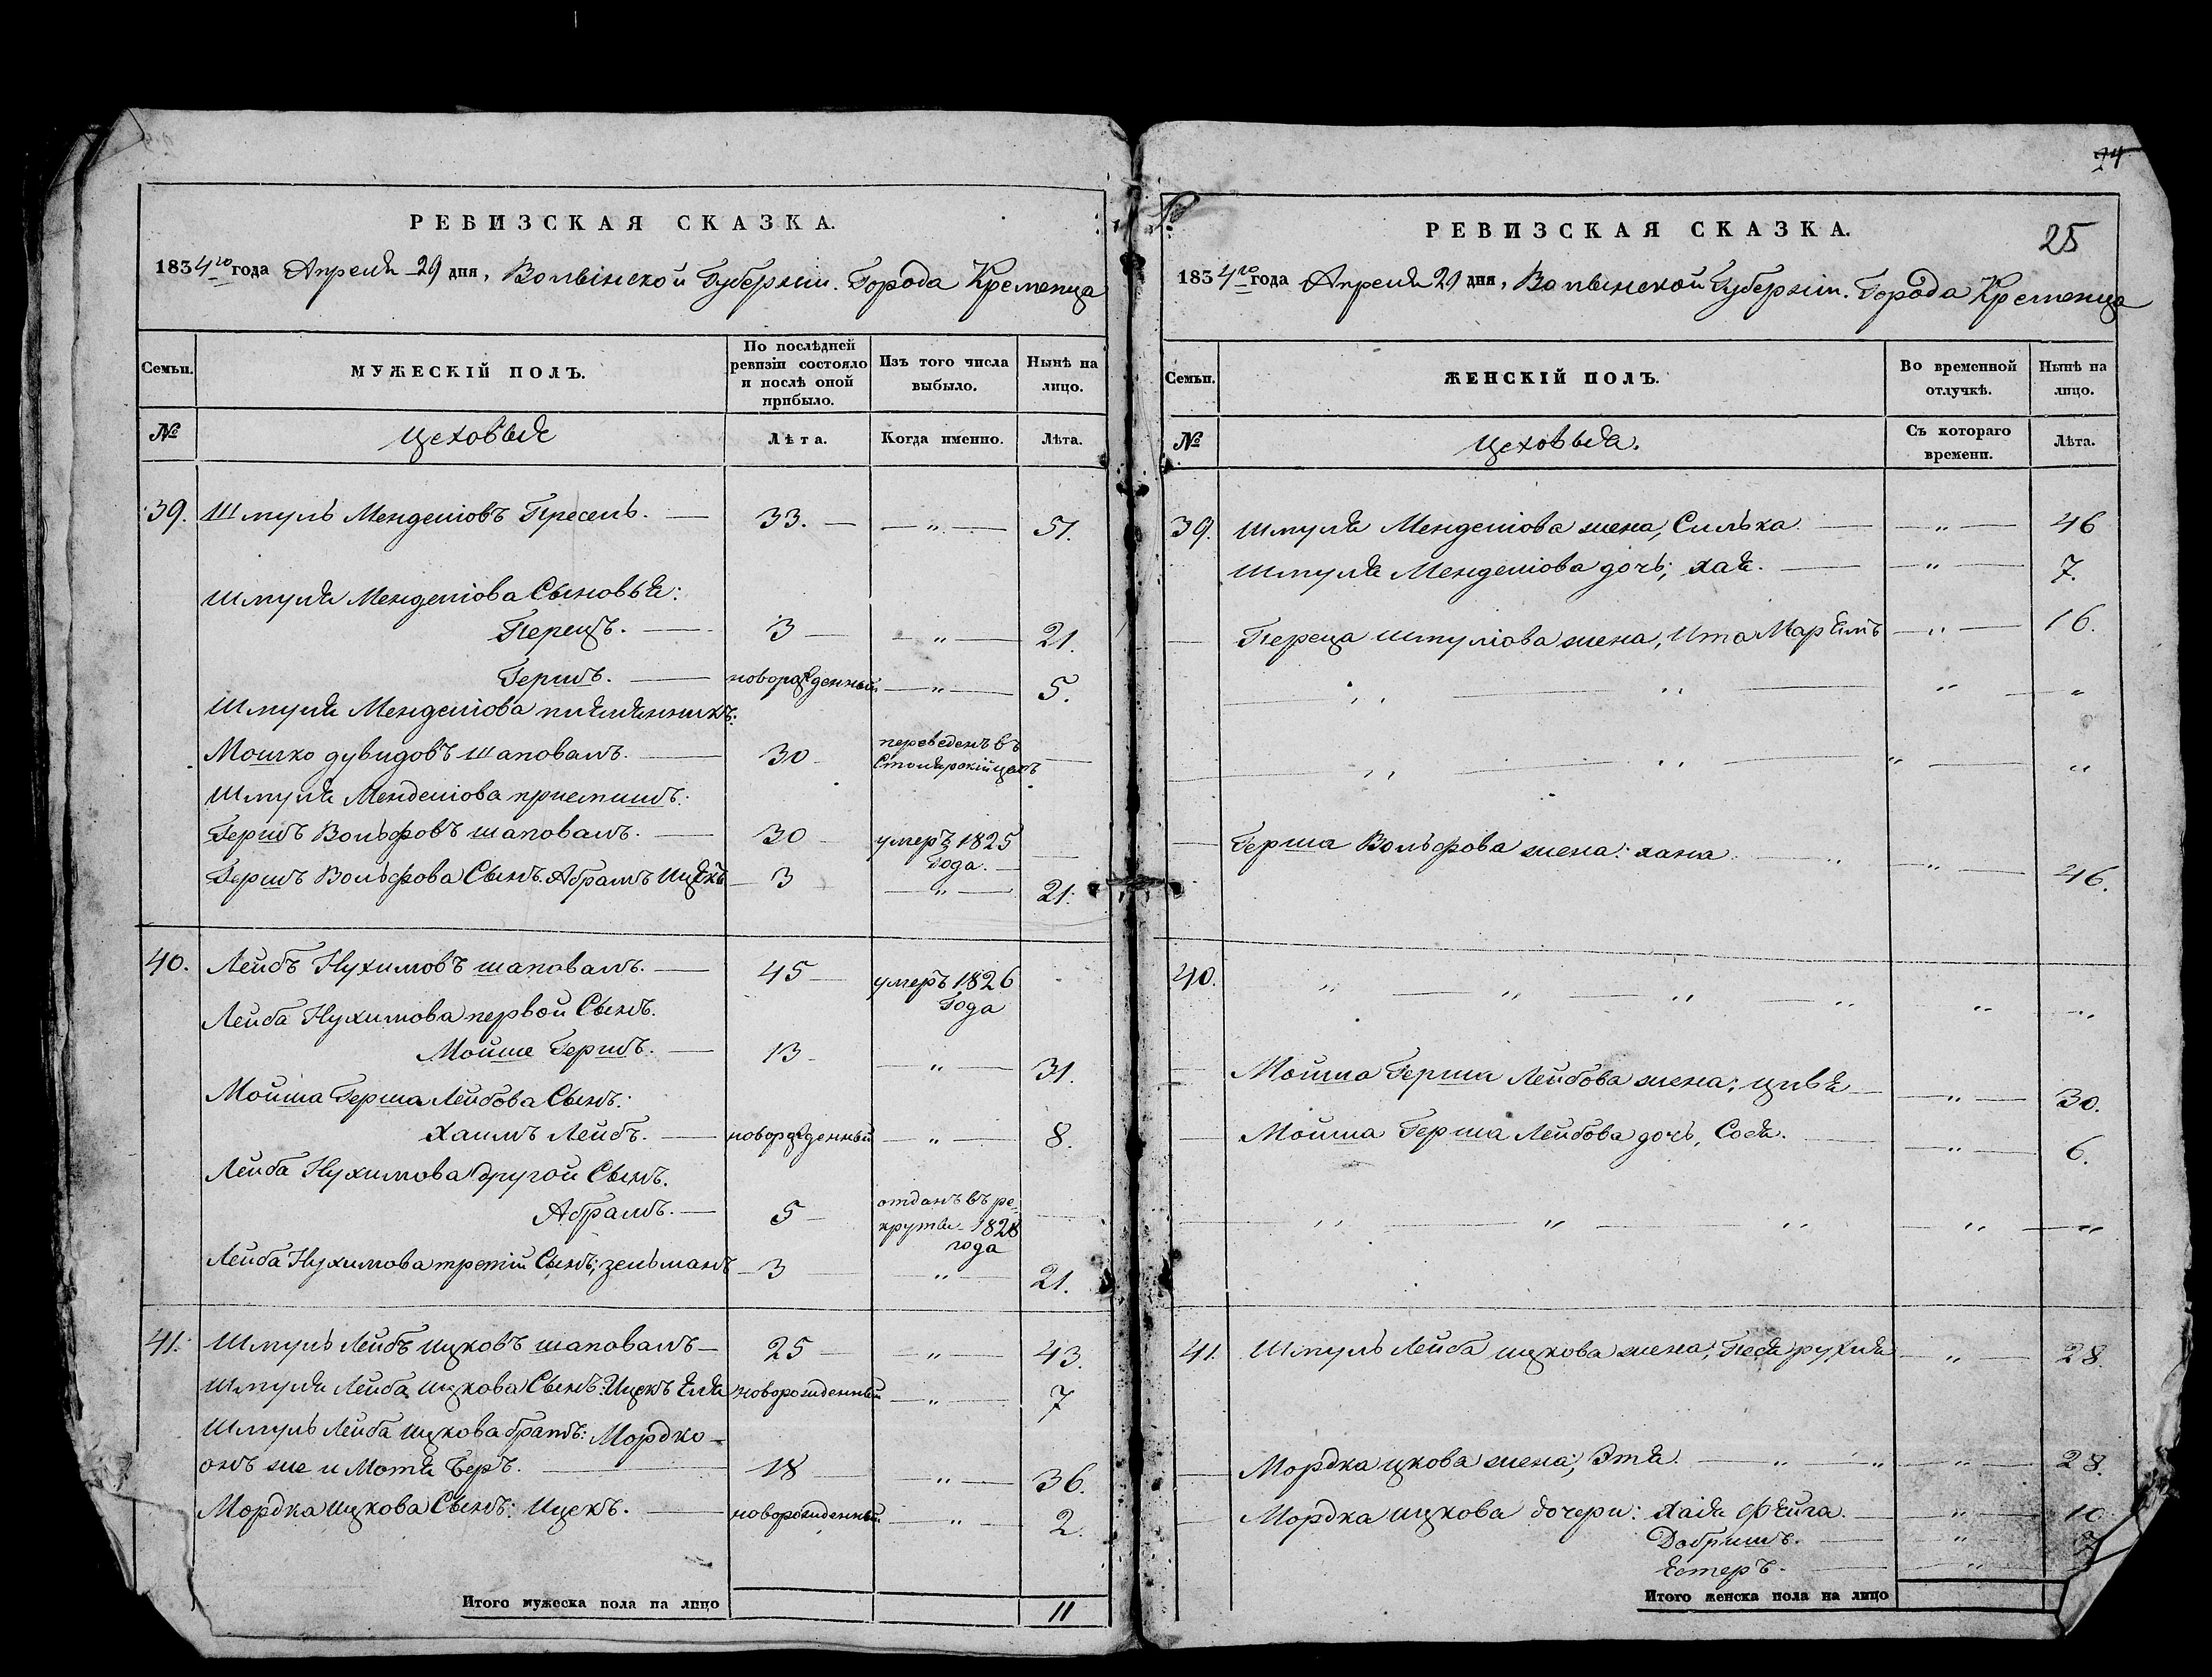 РЕВИЗСКАЯ СКАЗКА.
1834го года Апреля 29 дня, Волынской Губернии. Города Кременца
Семьи.
МУЖЕСКІЙ ПОЛЪ.
По послѣдней ревизіи состояло и послѣ оной прибыло.
Изъ того числа выбыло.
Нынѣ на лицо.
№
цеховые
Лѣта.
Когда именно.
Лѣта.
39. Шмуль Менделіовъ Пресель. 33. — „ — 51.
Шмуля Менделіова Сыновья:
Перецъ. — 3 — „ — 21.
Гершъ. — новорожденный — „ — 5.
Шмуля Менделіова племянникъ:
Мошко дувидовъ шаповалъ. — 30 переведенъ въ Столярскій цехъ —
Шмуля Менделіова приемышъ:
Гершъ Вольфовъ шаповалъ. — 30 умеръ 1825 Года. —
Гершъ Вольфова Сынъ. Абрамъ Ицекъ — 3 — „ — 21.
40. Лейбъ Нухимовъ шаповалъ. — 45 — умеръ 1826 Года
Лейба Нухимова первой Сынъ.
Мойше Гершъ. — 13 — „ — 31.
Мойша Герша Лейбова Сынъ:
Хаимъ Лейбъ. — новорожденный — „ — 8.
Лейба Нухимова другой Сынъ.
Абрамъ. — 5 — отданъ въ рекруты 1828 года —
Лейба Нухимова третій Сынъ; зельманъ — 3 — „ — 21.
41. Шмуль Лейбъ ицковъ шаповалъ — 25 — „ — 43.
Шмуля Лейба ицкова Сынъ: Ицекъ Еля новорожденный — „ — 7
Шмуль Лейба ицкова братъ: Мордко —
онъ же и Мотя Беръ. — 18 — „ — 36.
Мордка ицкова Сынъ: Ицекъ. — новорожденный — „ — 2.
Итого мужеска пола на лицо 11
24
25
РЕВИЗСКАЯ СКАЗКА.
1834го года Апреля 29 дня, Волынской Губерніи. Города Кременца
Семьи.
ЖЕНСКІЙ ПОЛЪ.
Во временной отлучкѣ.
Нынѣ на лицо.
№
Цеховыя.
Съ котораго времени.
Лѣта.
39. Шмуля Менделіова жена, Силька. — „ — 46
Шмуля Менделіова дочь; хая. — „ — 7.
Переца шмуліова жена, Ита Марьямъ — „ — 16.
Герша Вольфова жена: хана — „ — 46.
40. „ — „ — „ — „ „ „
Мойша Герша Лейбова жена; цивя — „ — 30.
Мойша Герша Лейбова дочь, Сося. — „ — 6.
41. Шмуль Лейба ицкова жена, Песя рухля — „ — 28.
Мордка ицкова жена; Этя. — „ — 28.
Мордка ицкова дочери: Хая Фейга. — „ — 10
Добришъ. — „ — 7
Естеръ. — „
Итого женска пола на лицо